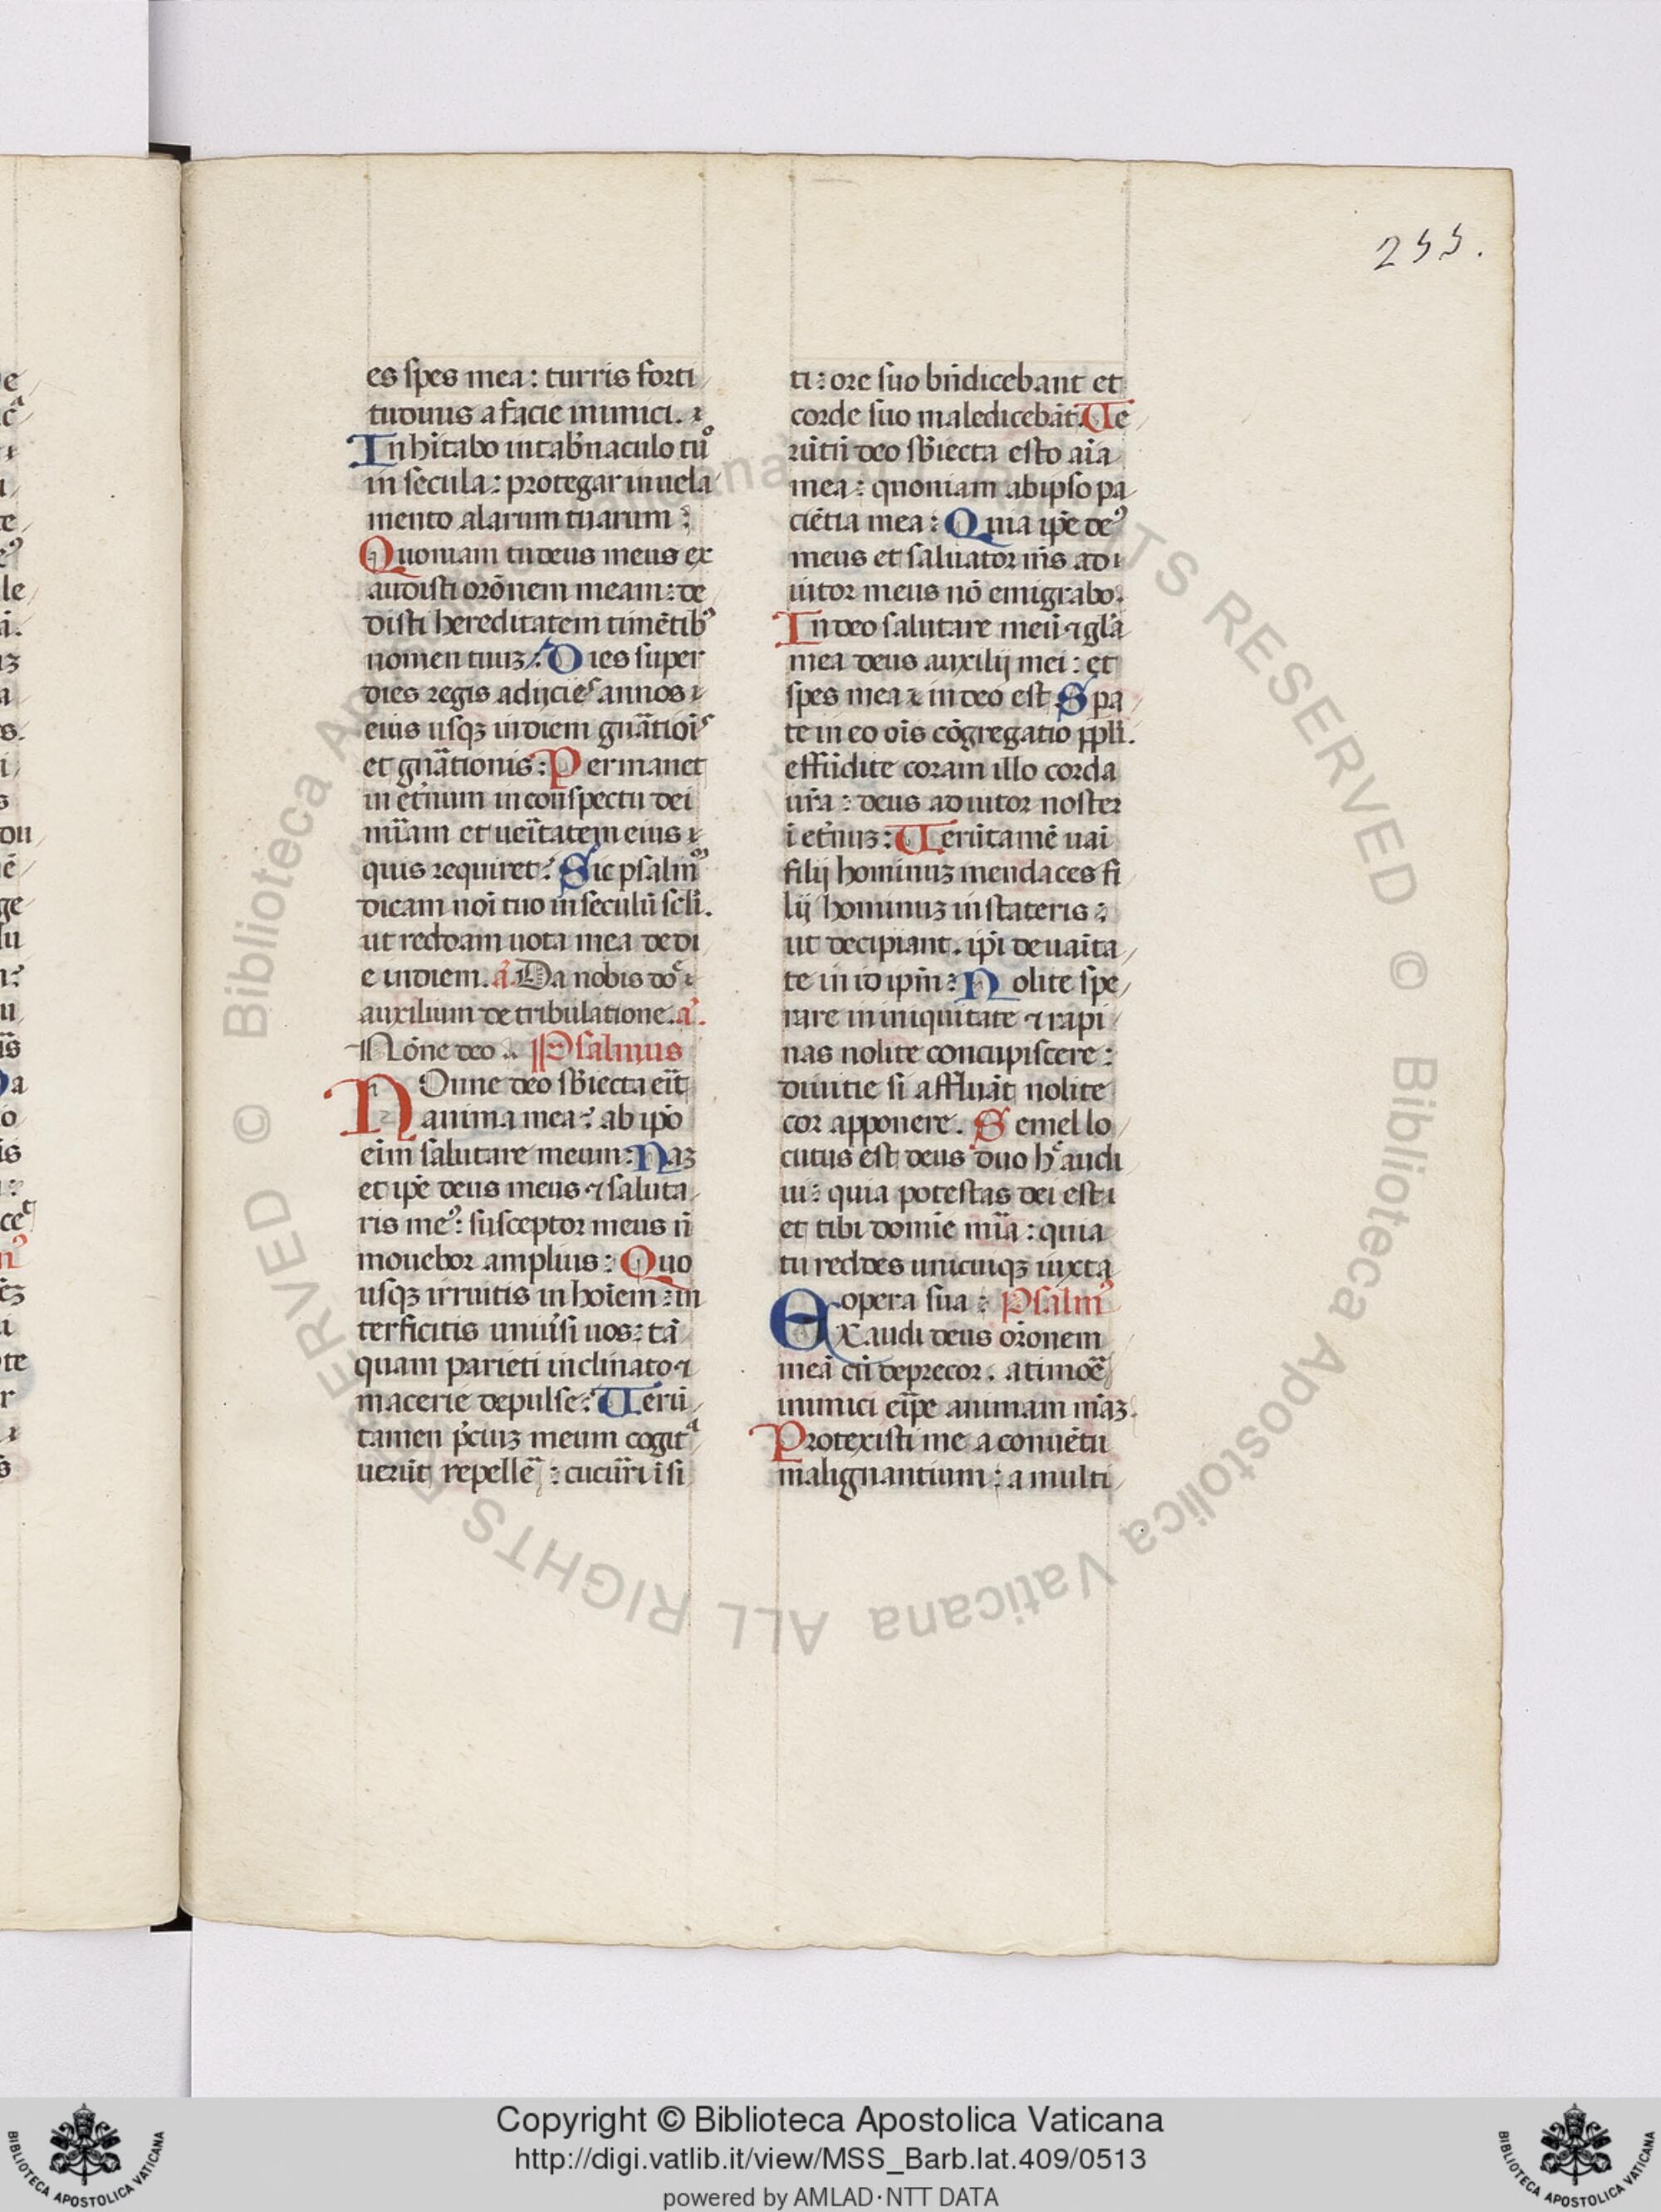 255.
es spes mea: turris forti
tudinis a facie inimici.
Inhitabo in tab̄naculo tuᵒ
in secula: protegar in uela
mento alarum tuarum:
Quoniam tu deus meus ex
audisti orōnem meam: de
disti hereditatem timētibꝰ
nomen tuuꝫ: Dies super
dies regis adijcieˢ annos
eius usqꝫ in diem gn̄atioīˢ
et gn̄ationis: Permanet
in et̄num in conspectu dei
mīam et ueītatem eius
quis requiret: Sic psalmꝰ
dicam noī tuo in seculū scl̄i.
ut reddam uota mea de di
e in diem. a̅. Da nobis do͛
auxilium de tribulatione. a̅.
Nōne deo.. Psalmus
NOnne deo sb̄iecta eīt
anima mea: ab ip̄o
eīm salutare meum: Naꝫ
et ip̄e deus meus ⁊ saluta
ris meꝰ: susceptor meus n̄
mouebor amplius: Quo
usqꝫ irruitis in hoīem: in
terficitis uniūsi uos: tā
quam parieti inclinato ⁊
macerie depulse: Uerū
tamen p̄ciuꝫ meum cogitᵃ
uerūt repelle͞: cucūri ī si
ti: ore suo bn̄dicebant et
corde suo maledicebāt. Ue
rūtū deo sb̄iecta esto aīa
mea: quoniam ab ipso pa
ciētia mea: Quia ip̄e deꝰ
meus et saluator m̄s adi
utor meus nō emigrabo.
In deo salutare meū ⁊ gl̄a
mea deus auxilij mei: et
spes mea in deo est Spa
te in eo oīs cōgregatio ppl̄i.
effūdite coram illo corda
ur̄a: deus adiutor noster
ī et̄nuꝫ: Uerūtamē uai
filij hominuꝫ mendaces fi
lij hominuꝫ in stateris:
ut decipiant. ip̄i de uaīta
te in idip̄m: Nolite spe
rare in iniquitate ⁊ rapi
nas nolite concupiscere:
diuitie si affluāt nolite
cor apponere. Semel lo
cutus est deus duo h͛ audi
ui: quia potestas dei est
et tibi domīe mīa: quia
tu reddes unicuiqꝫ iuxta
opera sua: Psalmꝰ
Exaudi deus orōonem
meā cū deprecor. a timoe͞
inimici eīpe animam māꝫ.
Protexisti me a conuētu
malignantium: a multi
© Biblioteca Apostolica Vaticana ALL RIGHTS RESERVED
© Biblioteca Apostolica Vaticana ALL RIGHTS RESERVED
Copyright © Biblioteca Apostolica Vaticana
http://digi.vatlib.it/view/MSS_Barb.lat.409/0513
powered by AMLAD·NTT DATA
BIBLIOTECA APOSTOLICA VATICANA
BIBLIOTECA APOSTOLICA VATICANA